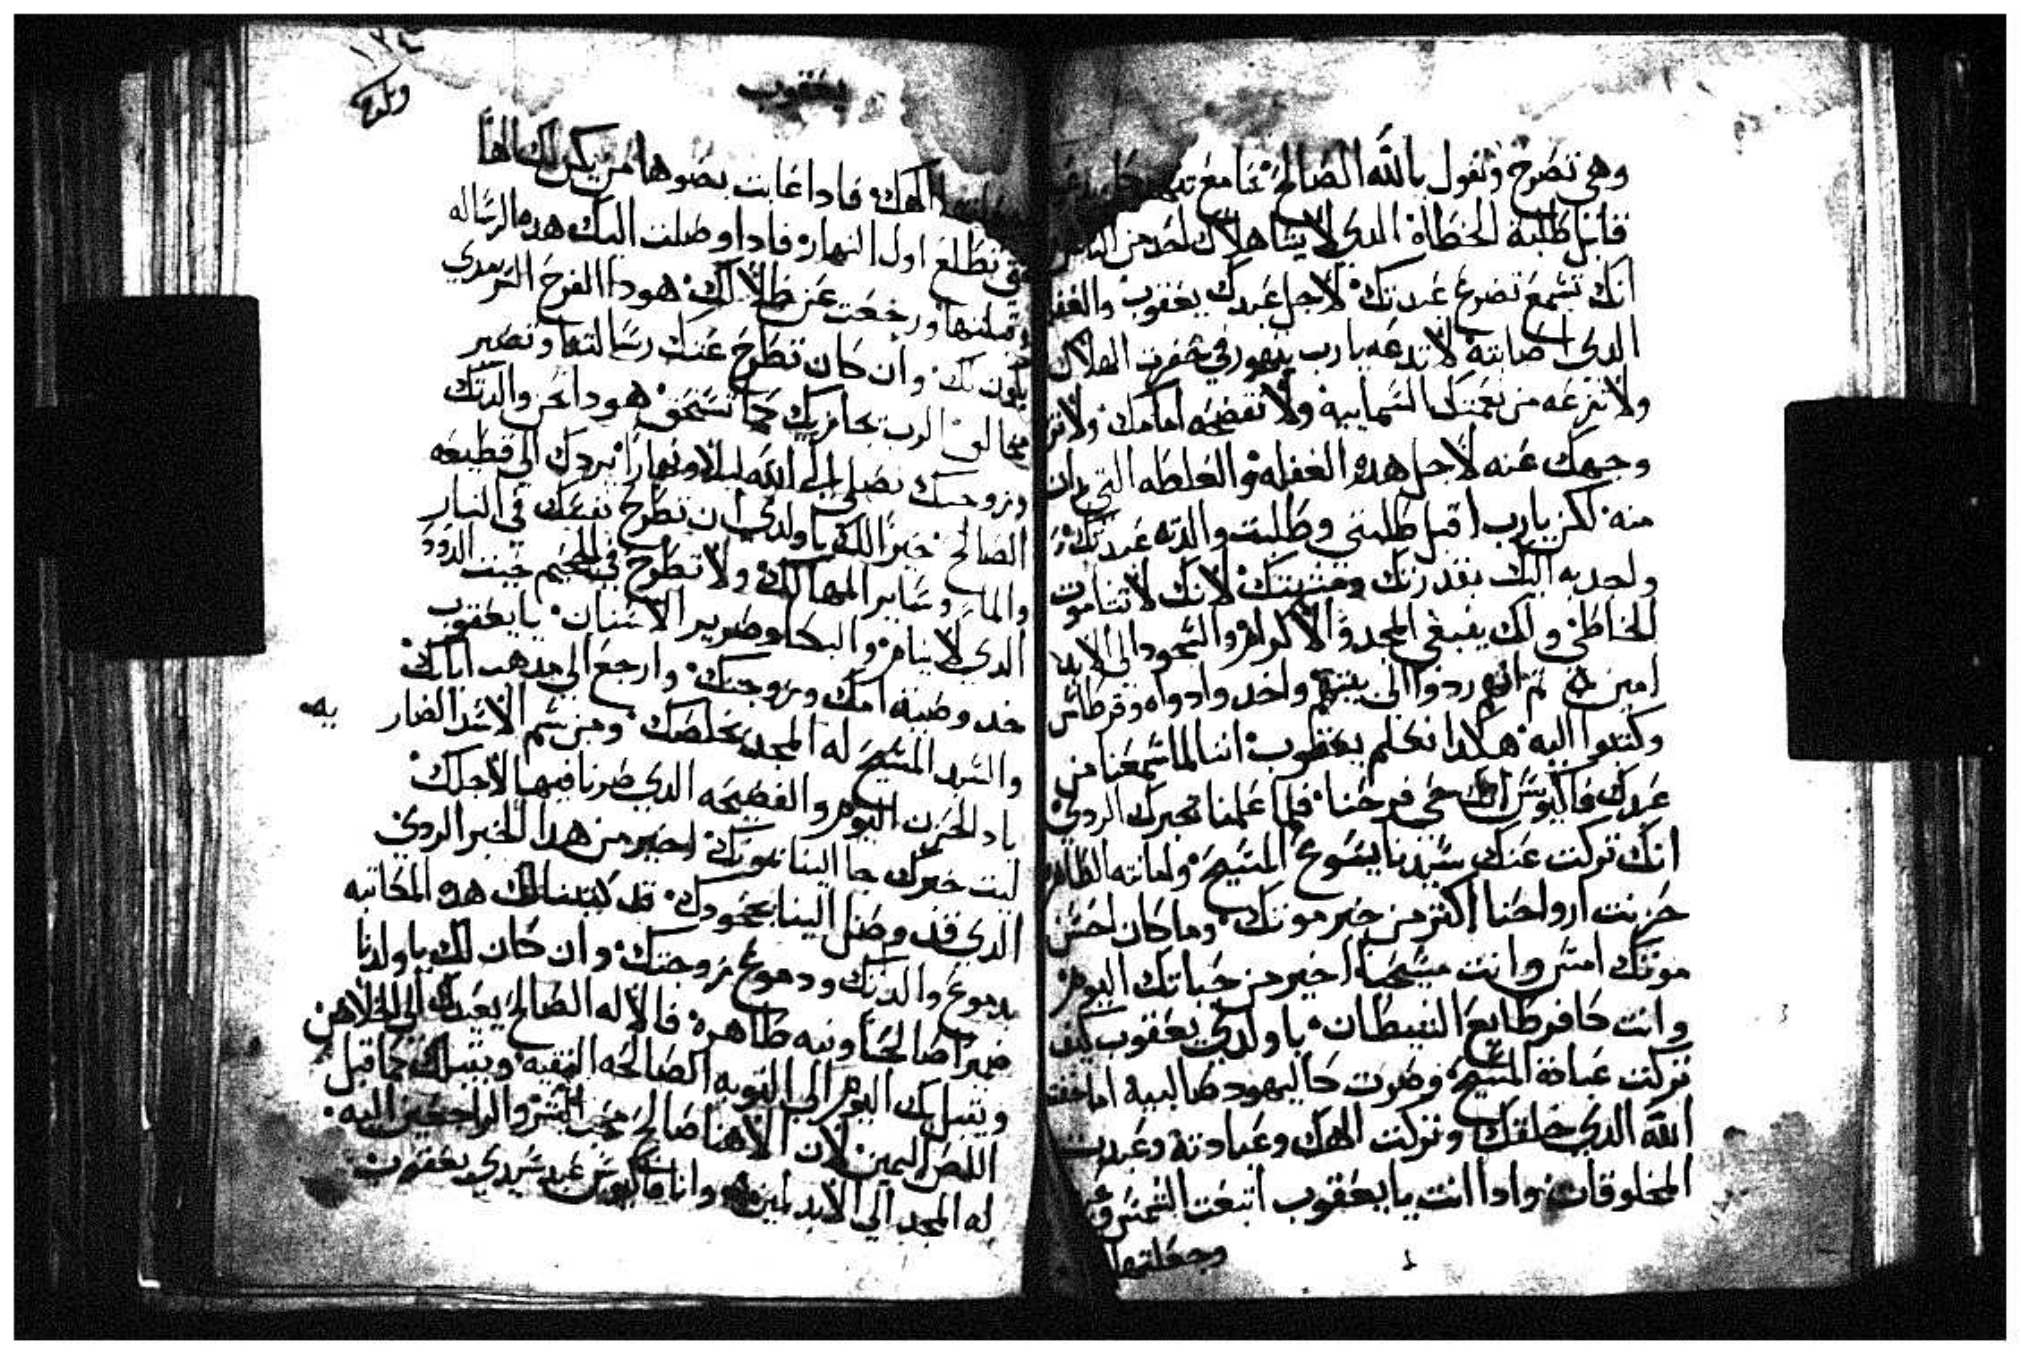 وهي تصرخ وتقول يالله الصالح
قابل طلبة الخطاة الدي لا يشا هلاك احد من الناس
انك تسمع تضرع عبدتك لاجل عبدك يعقوب والغفر
الدي اصابته لا تدعه يارب يتهور في حفرت الهلاك
ولا تنزعه من نعمتك السماييه ولا تفضحه امامك ولا
وجهك عنه لاجل هده الغفله والغلطه التي
منه لكن يارب اقبل طلبتي وطلبت والدته عبدتك
واجدبه اليك بقدرتك ومشيتك لانك لا تشا موت
الخاطي ولك ينبغي المجد والاكرام والسجود الى الابد
امين ثم انهم ردوا الى بيتهم واخدوا دواه وقرطاس
وكتبوا اليه هكدا نعلم يعقوب اننا لما سمعنا من
عبدك فاكيوس انك حي فرحنا فلما علمنا بخبرك الردي
انك تركت عنك سيدنا يسوع المسيح وامانته الطاهره
حزنت ارواحنا اكتر من خبر موتك وما كان احسن
موتك امس وانت مسيحيا اخير من حياتك اليوم
وانت كافر طايع الشيطان يا ولدي يعقوب كيف
تركت عبادة المسيح وصرت كاليهود صالبيه اما خفت
الله الدي خلقك وتركت الهك وعبادته وعبدت
المخلوقات وادا انت يا يعقوب اتبعت الشمس
وجعلتها
١٣٤
يعقوب
الهك فادا غابت بضوها فمن يكن لك الها
تطلع اول النهار فادا وصلت اليك هده الرساله
وقبلتها ورجعت عن ضلالك هودا الفرح السرمدي
يكون لك وان كان تطرح عنك رسالتها وتصير
مخالف الرب يجازيك كما تستحق هودا نحن والدتك
وزوجتك نصلي الى الله ليلا ونهارا يردك الى قطيعه
الصالح خيرا لك يا ولدي ان تطرح نفسك في النار
والما وساير المهالك ولا تطرح في الجحيم حيت الدود
الدي لا ينام والبكا وصرير الاسنان يا يعقوب
خد وصية امك وزوجتك وارجع الى مدهب اباك
والسيد المسيح له المجد يخلصك ومن سم الاسد الضار
ياد الحزن اليوم والفضيحه الدي صرنا فيها لاجلك
ليت خبرك جا الينا بموتك اخير من هدا الخبر الردي
الدي قد وصل الينا بجحودك قد كتبنا لك هده المكاتبه
بدموع والدتك ودموع زوجتك وان كان لك يا ولدنا
ضميرا صالحا ونيه طاهره فالاله الصالح يعيدك الى الخلاص
ويقبل بك اليوم الى التوبه الصالحه النقيه ويقبلك كما قبل
اللص اليمين لان الاهنا صالح محب البشر والراجعين اليه
له المجد الى الابد امين وانا فاكيوس عبد سيدي يعقوب